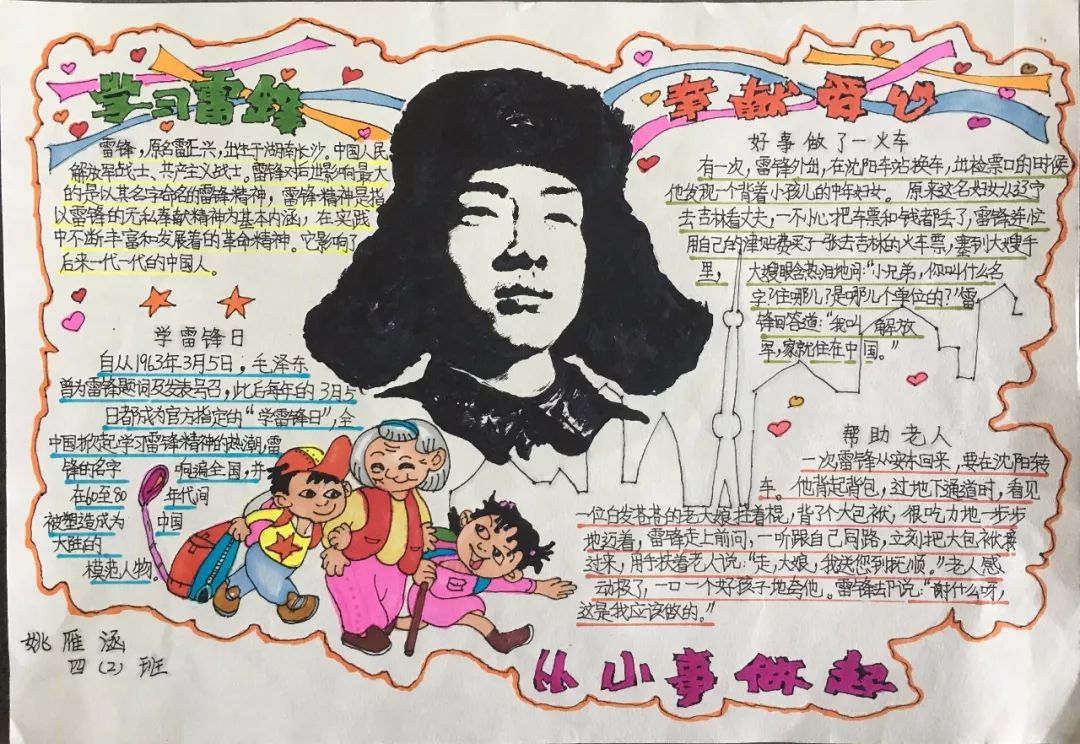 学习雷锋
雷锋，原名雷正兴，出生于湖南长沙。中国人民
解放军战士、共产主义战士。雷锋对后世影响最大
的是以其名字命名的雷锋精神，雷锋精神是指
以雷锋的无私奉献精神为基本内涵，在实践
中不断丰富和发展着的革命精神。它影响了
后来一代一代的中国人。
学雷锋日
自从1963年3月5日，毛泽东
曾为雷锋题词及发表号召，此后每年的3月5
日都成为官方指定的“学雷锋日”，全
中国掀起学习雷锋精神的热潮，雷
锋的名字 响遍全国，并
在60至80 年代间
被塑造成为 中国
大陆的
模范人物。
姚雁涵
四（2）班
奉献爱心
好事做了一火车
有一次，雷锋外出，在沈阳车站换车，出检票口的时候
他发现一个背着小孩儿的中年妇女。原来这名妇女从
去吉林看丈夫，一不小心把车票和钱都丢了，雷锋连忙
用自己的津贴费买了一张去吉林的火车票，塞到大嫂手
里，大嫂眼含热泪地问：“小兄弟，你叫什么名
字？住哪儿？是哪儿个单位的？”雷
锋回答道：“我叫 解放
军，家就住在中国。”
帮助老人
一次雷锋从安东回来，要在沈阳转
车。他背起背包，过地下通道时，看见
一位白发苍苍的老大娘拄着棍，背了个大包袱，很吃力地一步步
地迈着，雷锋走上前问，一听跟自己同路，立刻把大包袱接
过来，用手扶着老人说：“走，大娘，我送您到抚顺。”老人感
动极了，一口一个好孩子地夸他。雷锋却说：“谢什么呀，
这是我应该做的。”
于小事做起